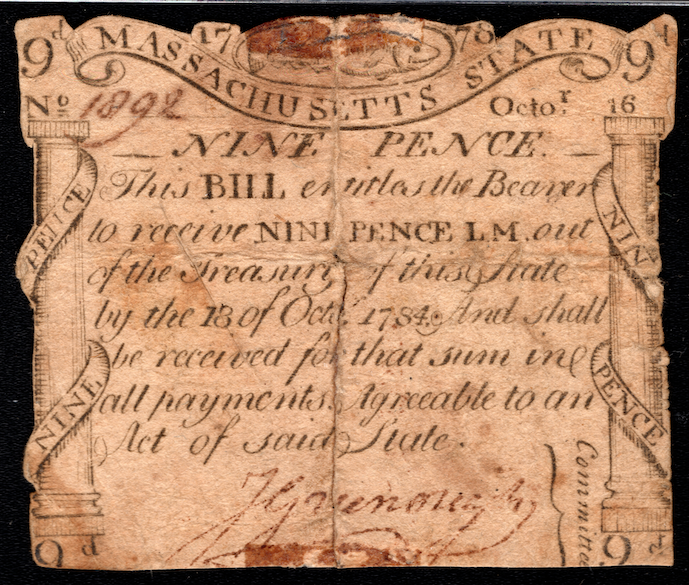 9d 17 78 9d
MASSACHUSETTS STATE
No 1892 Octor 16
NINE PENCE.
This BILL entitles the Bearer
to receive NINE PENCE L.M. out
of the Treasury of this State
by the 18 of Octr. 1784. And shall
be received for that sum in
all payments. Agreeable to an
Act of said State.
PENCE
NINE
NINE
PENCE
J Greenough
Committee
9d 9d